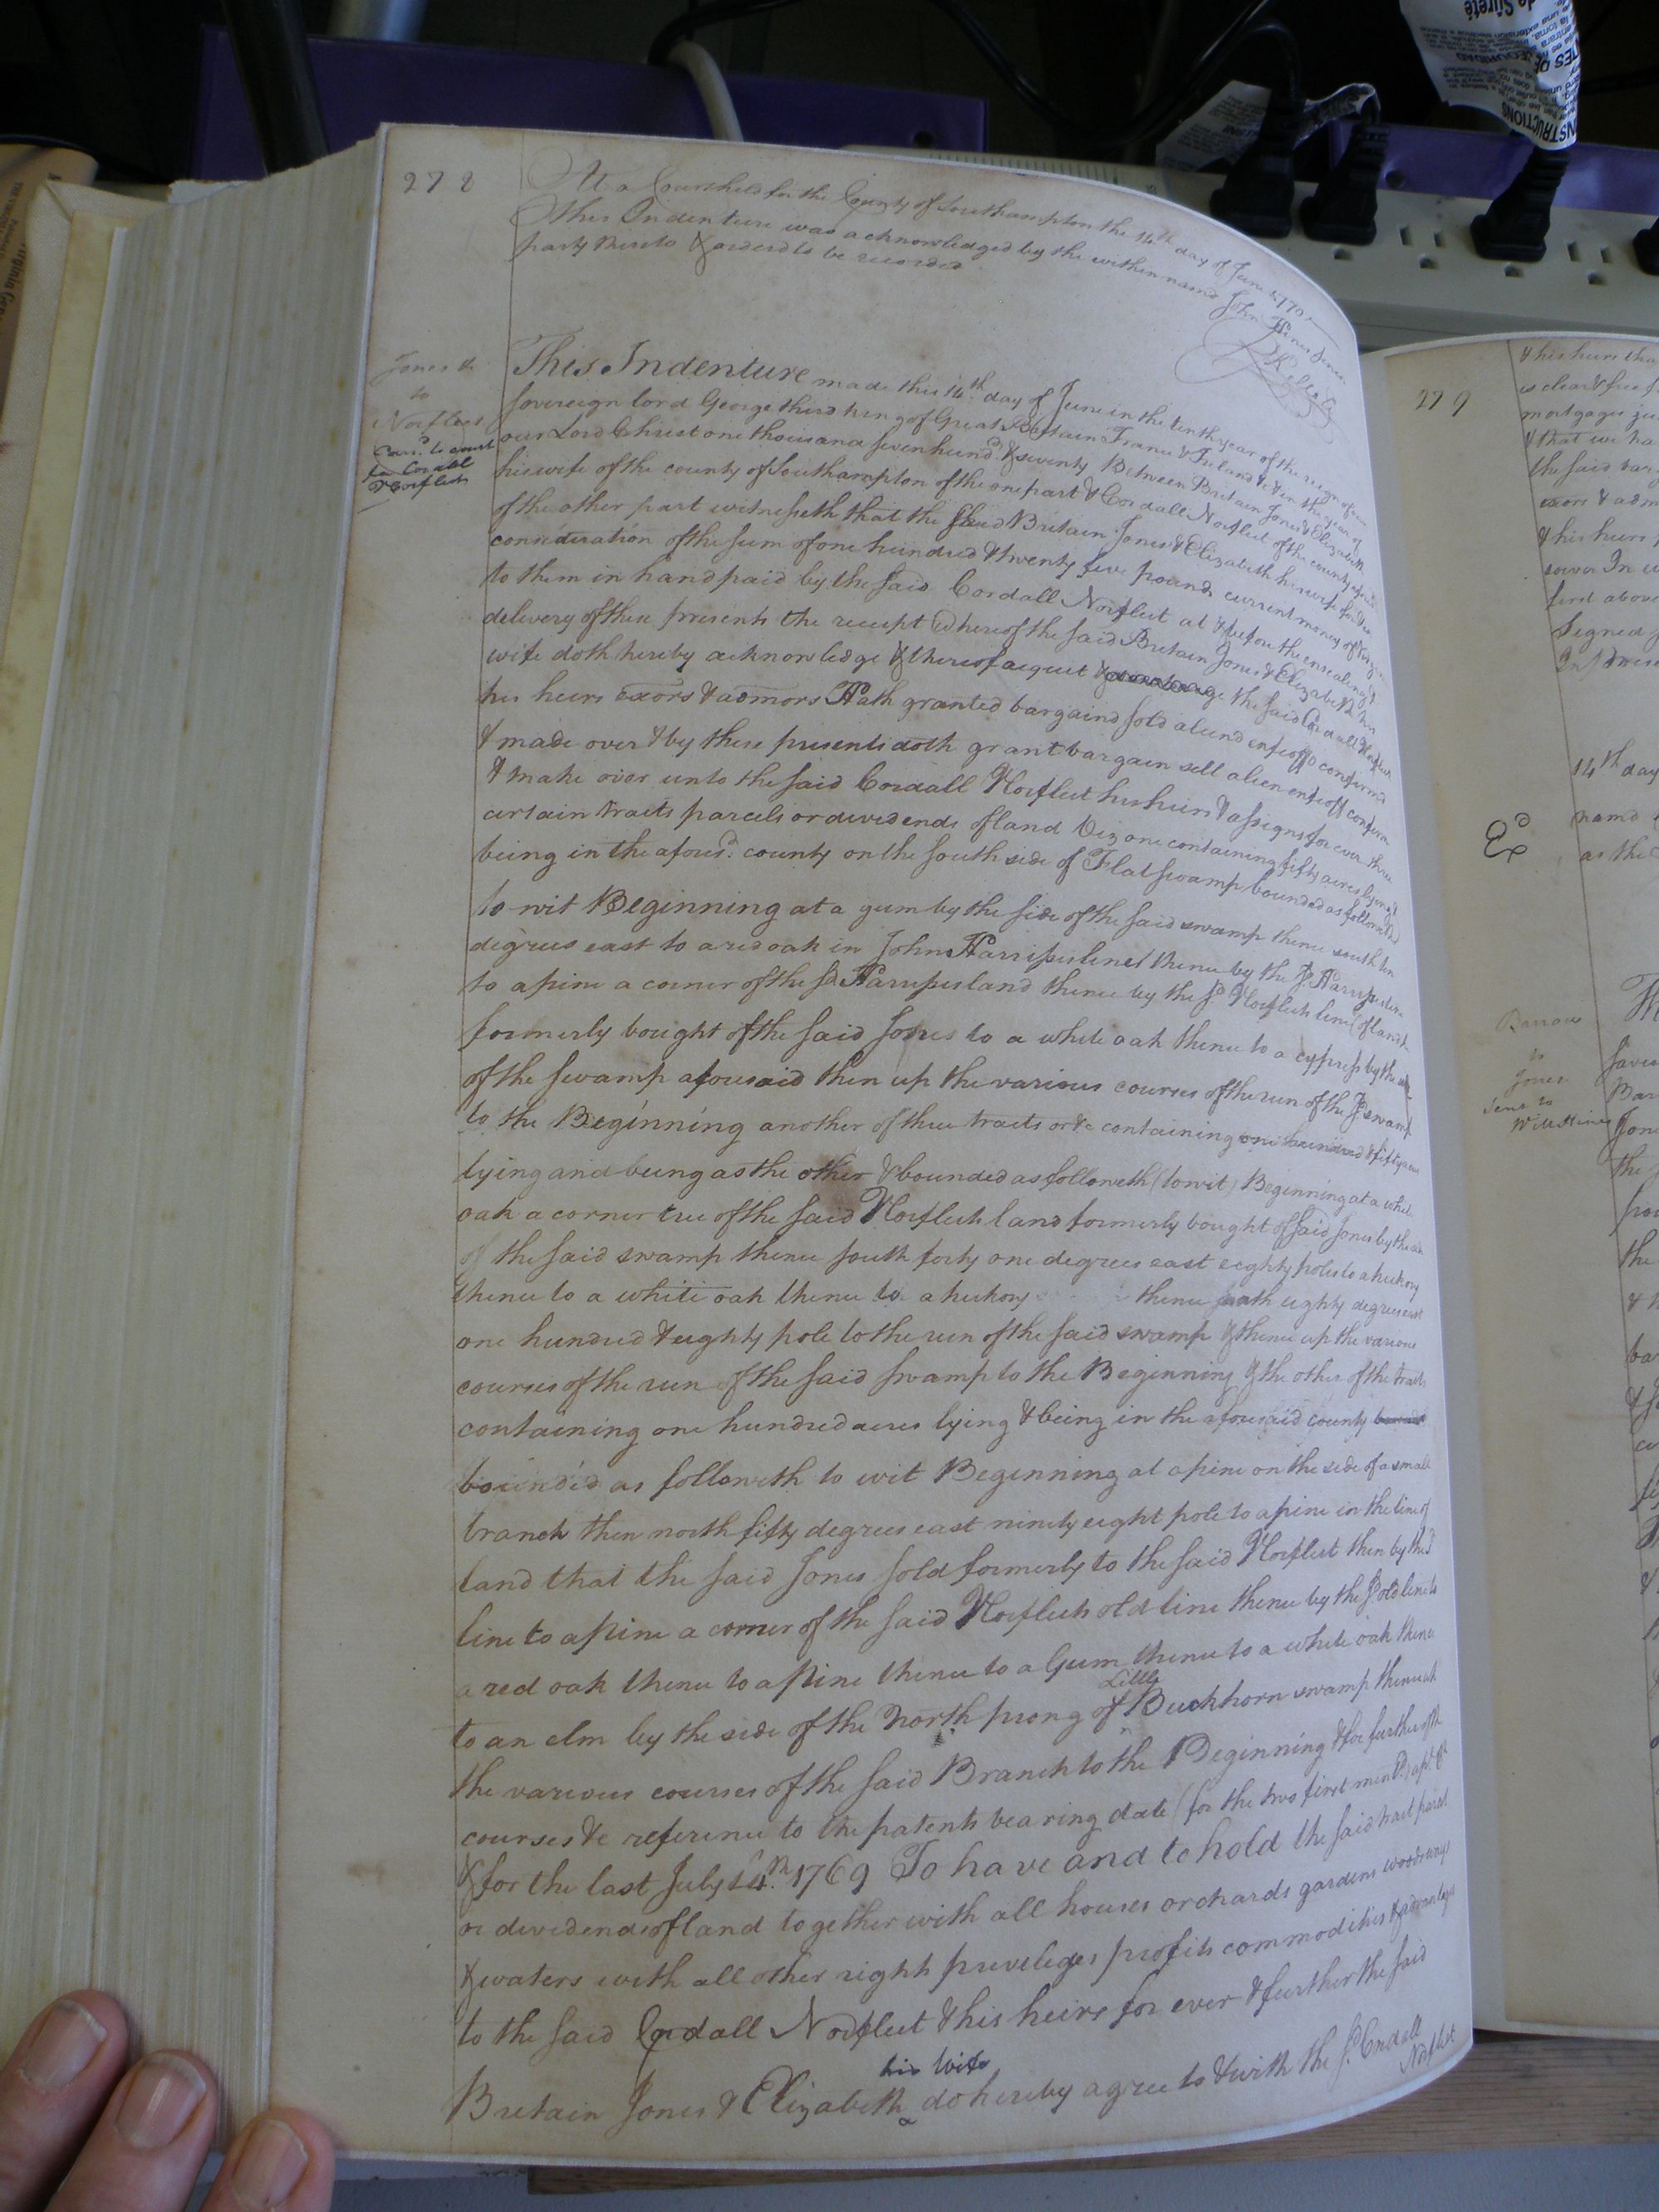 278
At a Court held for the County of Southampton the 14th day of June 1770
This Indenture was acknowledged by the within named John
party thereto & orderd to be recorded
Jones &
to
Norfleet
to
Cordall
Norfleet
This Indenture made this 14th day of June in the tenth year of the reign of our
sovereign lord George third king of Great Britain France & Ireland & in the year of
our Lord Christ one thousand seven hund.d & seventy Between Britain Jones & Elizabeth
his wife of the county of Southampton of the one part & Cordall Norfleet of the county
of the other part witnesseth that the said Britain Jones & Elizabeth his wife for the
consideration of the sum of one hundred & twenty five pounds current money of Virginia
to them in hand paid by the said Cordall Norfleet at & before the ensealing &
delivery of these presents the receipt whereof the said Bretain Jones & Elizabeth his
wife doth hereby acknowledge & thereof acquit & the said Cordall Norfleet
his heirs exors & admors Hath granted bargaind sold aliend enfeoff'd confirmd
& made over & by these presents doth grant bargain sell alien enfeoff confirm
& make over unto the said Cordall Norfleet his heirs & assigns for ever three
certain tracts parcels or dividends of land Viz one containing fifty acres lying &
being in the afores.d county on the south side of Flat swamp bounded as followeth
to wit Beginning at a gum by the side of the said swamp thence south ten
degrees east to a red oak in John Harrises line thence by the s.d Harrises line
to a pine a corner of the s.d Harrises land thence by the s.d Norfleets line (of land he
formerly bought of the said Jones to a white oak thence to a cypress by the side
of the swamp aforesaid then up the various courses of the run of the s.d swamp
to the Beginning another of three tracts or &c containing one hundred & fifty acres
lying and being as the other & bounded as followeth (to wit) Beginning at a white
oak a corner tree of the said Norfleets land formerly bought of said Jones by the side
of the said swamp thence south forty one degrees east eighty poles to a hickory
thence to a white oak thence to a hickory thence eighty degrees east
one hundred & eighty pole to the run of the said swamp & thence up the various
courses of the run of the said swamp to the Beginning & the other of the tracts
containing one hundred acres lying & being in the aforesaid county
bounded as followeth to wit Beginning at a pine on the side of a small
branch then north fifty degrees east ninety eight pole to a pine in the line of
land that the said Jones sold formerly to the said Norfleet then by the s.d
line to a pine a corner of the said Norfleets old line thence by the s.d old line to
a red oak thence to a pine thence to a Gum thence to a white oak thence
to an elm by the side of the North prong of Little Buckhorn swamp thence
the various courses of the said Branch to the Beginning & for further of the
courses &c reference to the patents bearing date (for the two first ment.d)
& for the last July 14th 1769 To have and to hold the said tract parcel
or dividends of land together with all houses orchards gardens woods ways
& waters with all other rights priveleges profits commodities & advantages
to the said Cordall Norfleet & his heirs for ever & further the said
Bretain Jones & Elizabeth his wife do hereby agree to & with the s.d Cordall
Norfleet
279
& his heirs
is clear & free
mortgages
& that we ha
the said
exors & adm
& his heirs
In
first above
Signed
14th day
namd
as the
Barrow
to
Jones